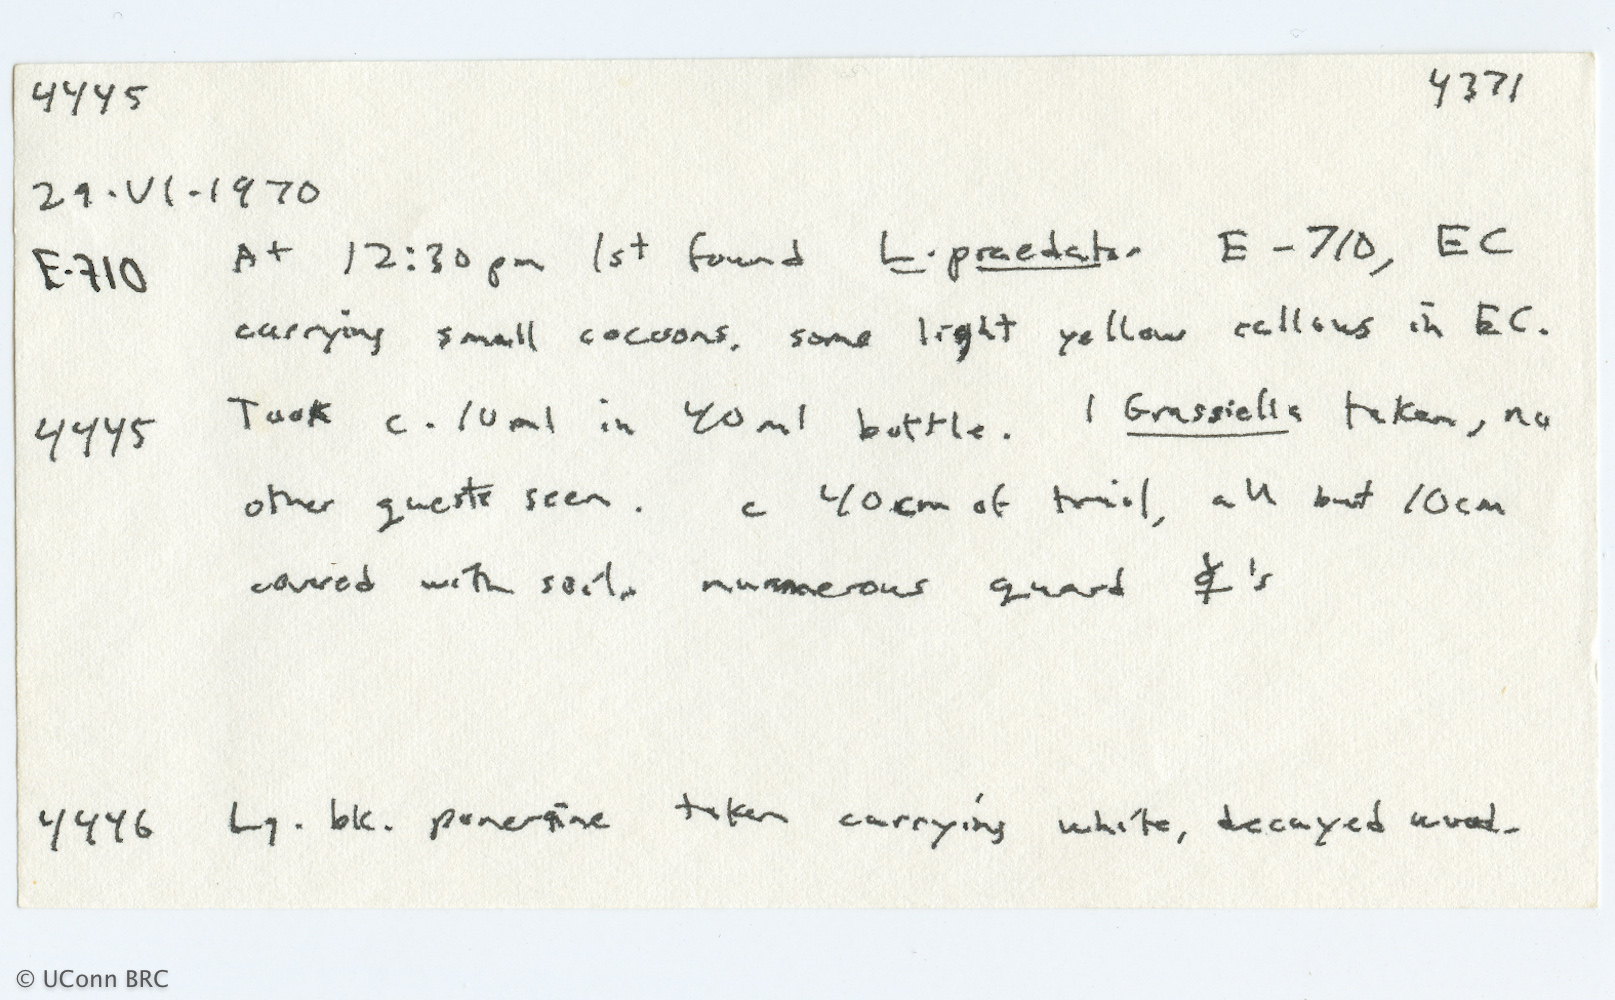 4445 4371
29·VI·1970
E-710 At 12:30pm 1st found L. praedator E-710, EC
carrying small cocoons. some light yellow callows in EC.
4445 Took c. 10ml in 40ml bottle. 1 Grassiella taken, no
other guests seen. c 40cm of trail, all but 10cm
covered with soil. nummerous guard ☿'s
4446 Lg. bk. ponerine taken carrying white, decayed wood.
© UConn BRC